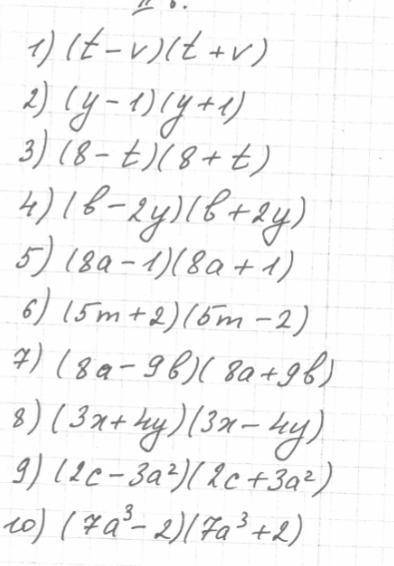 1) (t - v)(t + v)
2) (y - 1)(y + 1)
3) (8 - t)(8 + t)
4) (b - 2y)(b + 2y)
5) (8a - 1)(8a + 1)
6) (5m + 2)(5m - 2)
7) (8a - 9b)(8a + 9b)
8) (3x + 4y)(3x - 4y)
9) (2c - 3a²)(2c + 3a²)
10) (7a³ - 2)(7a³ + 2)